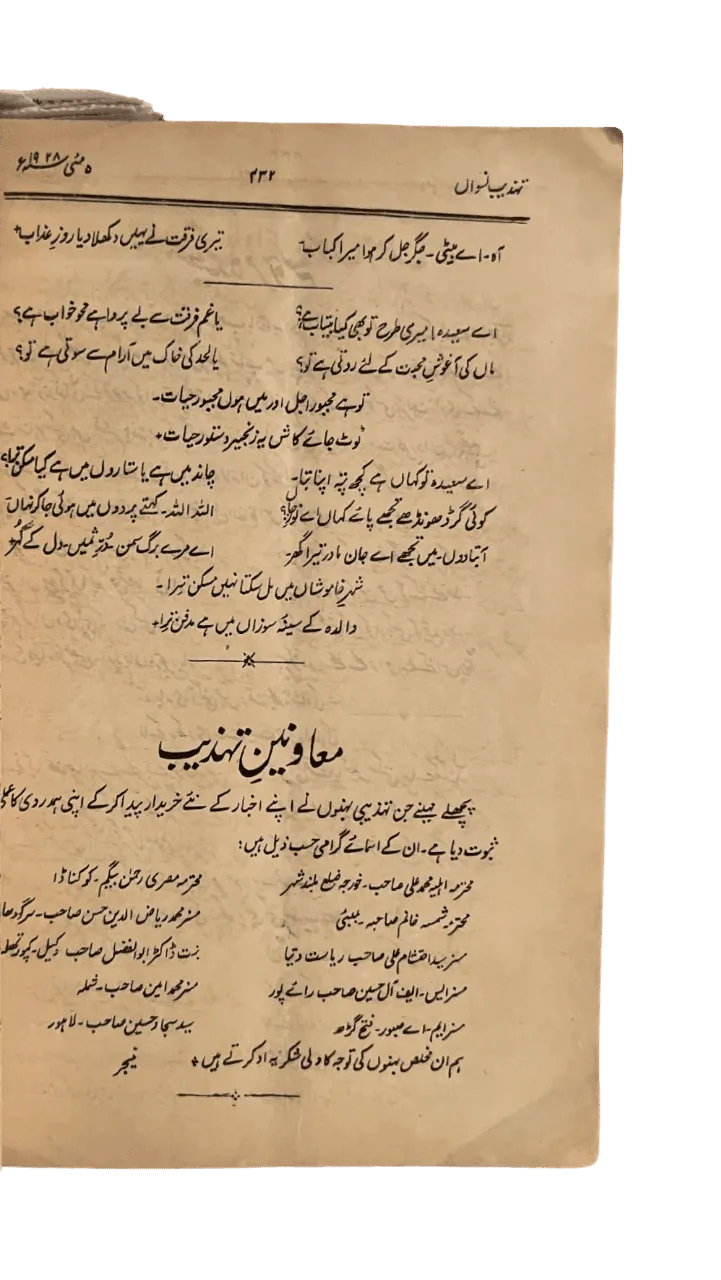 تہذیب نسواں ۴۳۲ ۵ مئی ۱۹۲۸ء
آہ۔ اے بیٹی۔ جگر جل کر ہوا میرا کباب۔ تیری فرقت نے ہمیں دکھلا دیا روزِ عذاب+
اے سعیدہ! میری طرح تو بھی کیا بیتاب ہے؟ یا غم فرقت سے بے پروا ہے محوِ خواب ہے؟
ماں کی آغوشِ محبت کے لئے روتی ہے تو؟ یا لحد کی خاک میں آرام سے سوتی ہے تو؟
تو ہے مجبورِ اجل اور میں ہوں مجبورِ حیات۔
ٹوٹ جائے کاش یہ زنجیر دستورِ حیات+
اے سعیدہ تو کہاں ہے کچھ پتہ اپنا بتا۔ چاند میں ہے یا ستاروں میں ہے کیا مسکن ترا؟
کوئی گر ڈھونڈھے تجھے پائے کہاں اے نور دل؟ اللہ اللہ۔ کہتے پردوں میں ہوئی جا کر نہاں
آبتا دوں۔ میں تجھے اے جان مادر تیرا گھر۔ اے مرے برگ سمن۔ دُرِّ ثمیں۔ دل کے گہر
شہرِ خاموشاں میں مل سکتا نہیں مسکن تیرا۔
والدہ کے سینۂ سوزاں میں ہے مدفن ترا+
معاونینِ تہذیب
پچھلے مہینے جن تہذیبی بہنوں نے اپنے اخبار کے نئے خریدار پیدا کر کے اپنی ہمدردی کا عملی
ثبوت دیا ہے۔ ان کے اسمائے گرامی حسب ذیل ہیں:
محترمہ اہلیہ محمد علی صاحب۔ خورجہ ضلع بلند شہر محترمہ مصری رحمٰن بیگم۔ کوکناڈا
محترمہ شمسہ خانم صاحبہ۔ بمبئی مسز محمد ریاض الدین حسن صاحب۔ سرگودھا
مسز سید احتشام علی صاحب ریاست دتیا بنت ڈاکٹر ابوالفضل صاحب وکیل۔ کپورتھلہ
مسز ایس۔ ایف آل حسین صاحب رائے پور مسز محمد امین صاحب۔ شملہ
مسز ایم۔ اے صبور۔ فتح گڑھ سید سجاد حسین صاحب۔ لاہور
ہم ان مخلص بہنوں کی توجہ کا دلی شکریہ ادا کرتے ہیں+ منیجر